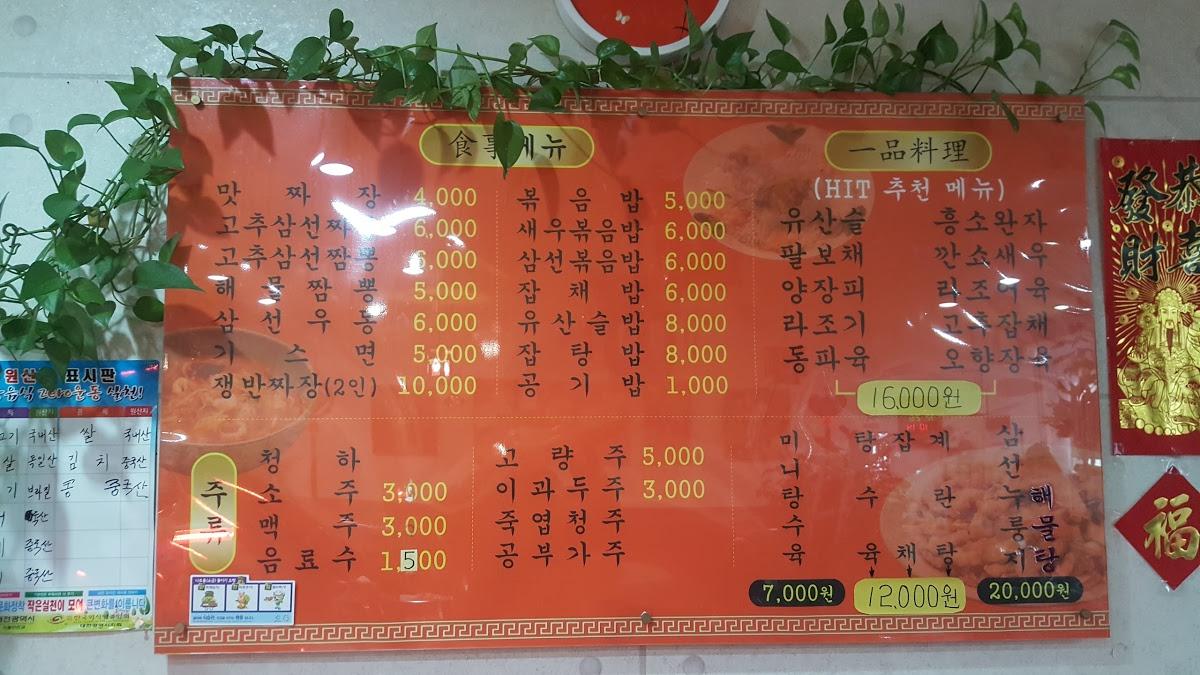 食事메뉴
맛짜장 4,000
고추삼선짜장 6,000
고추삼선짬뽕 6,000
해물짬뽕 5,000
삼선우동 6,000
기스면 5,000
쟁반짜장(2인) 10,000
볶음밥 5,000
새우볶음밥 6,000
삼선볶음밥 6,000
잡채밥 6,000
유산슬밥 8,000
잡탕밥 8,000
공기밥 1,000
一品料理
(HIT 추천 메뉴)
유산슬 흥소완자
팔보채 깐소새우
양장피 라조어육
라조기 고추잡채
동파육 오향장육
16,000원
주류
청하
소주 3,000
맥주 3,000
음료수 1,500
고량주 5,000
이과두주 3,000
죽엽청주
공부가주
미니탕수육
탕수육
잡채
계란탕
삼선누룽지
해물탕
7,000원
12,000원
20,000원
표시판
국내산 쌀 국내산
살 김치 중국산
브라질 콩 중국산
중국산
중국산
작은실천이 모여 큰변화를 이룹니다
恭喜
發財
福